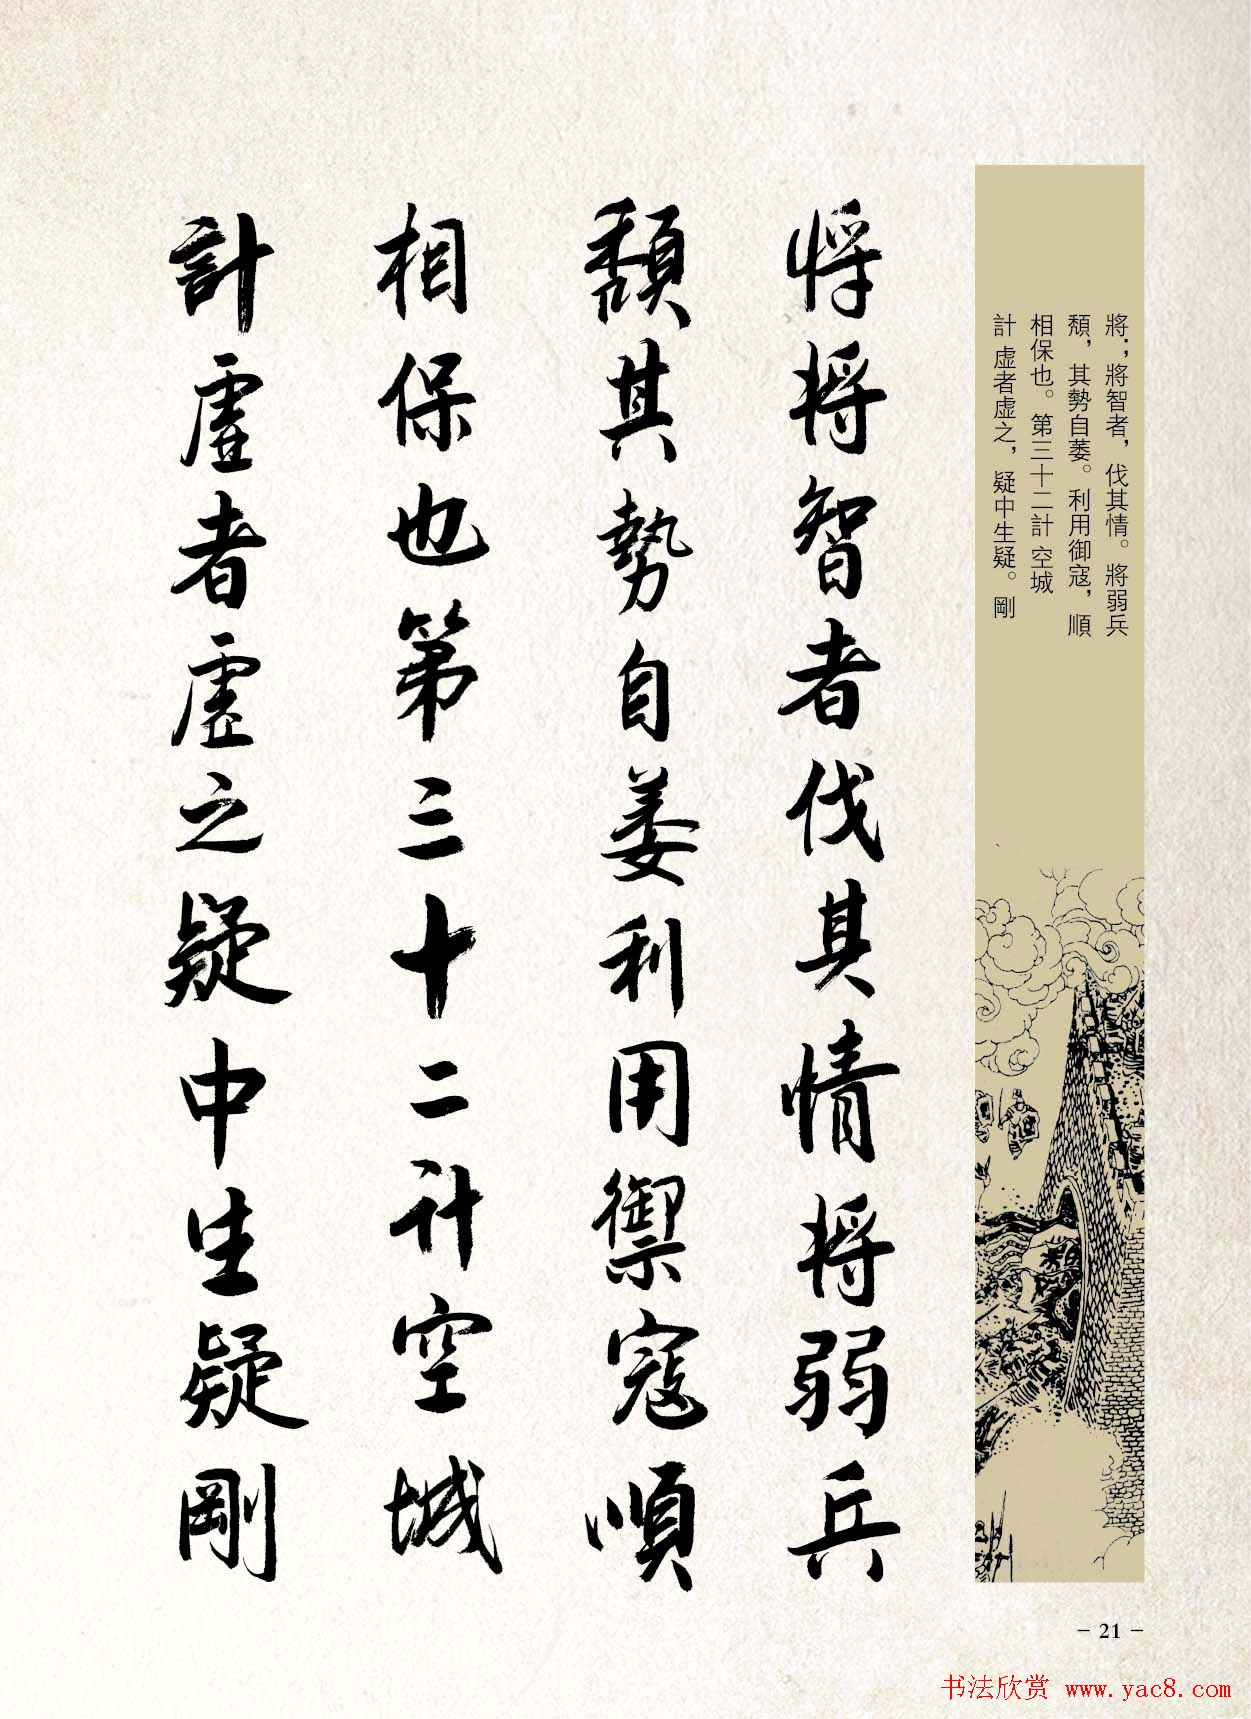 將；將智者，伐其情。將弱兵
頹，其勢自萎。利用御寇，順
相保也。第三十二計 空城
計 虛者虛之，疑中生疑。剛
将将智者伐其情将弱兵
頹其勢自萎利用禦寇順
相保也第三十二計空城
計虛者虛之疑中生疑剛
- 21 -
书法欣赏 www.yac8.com